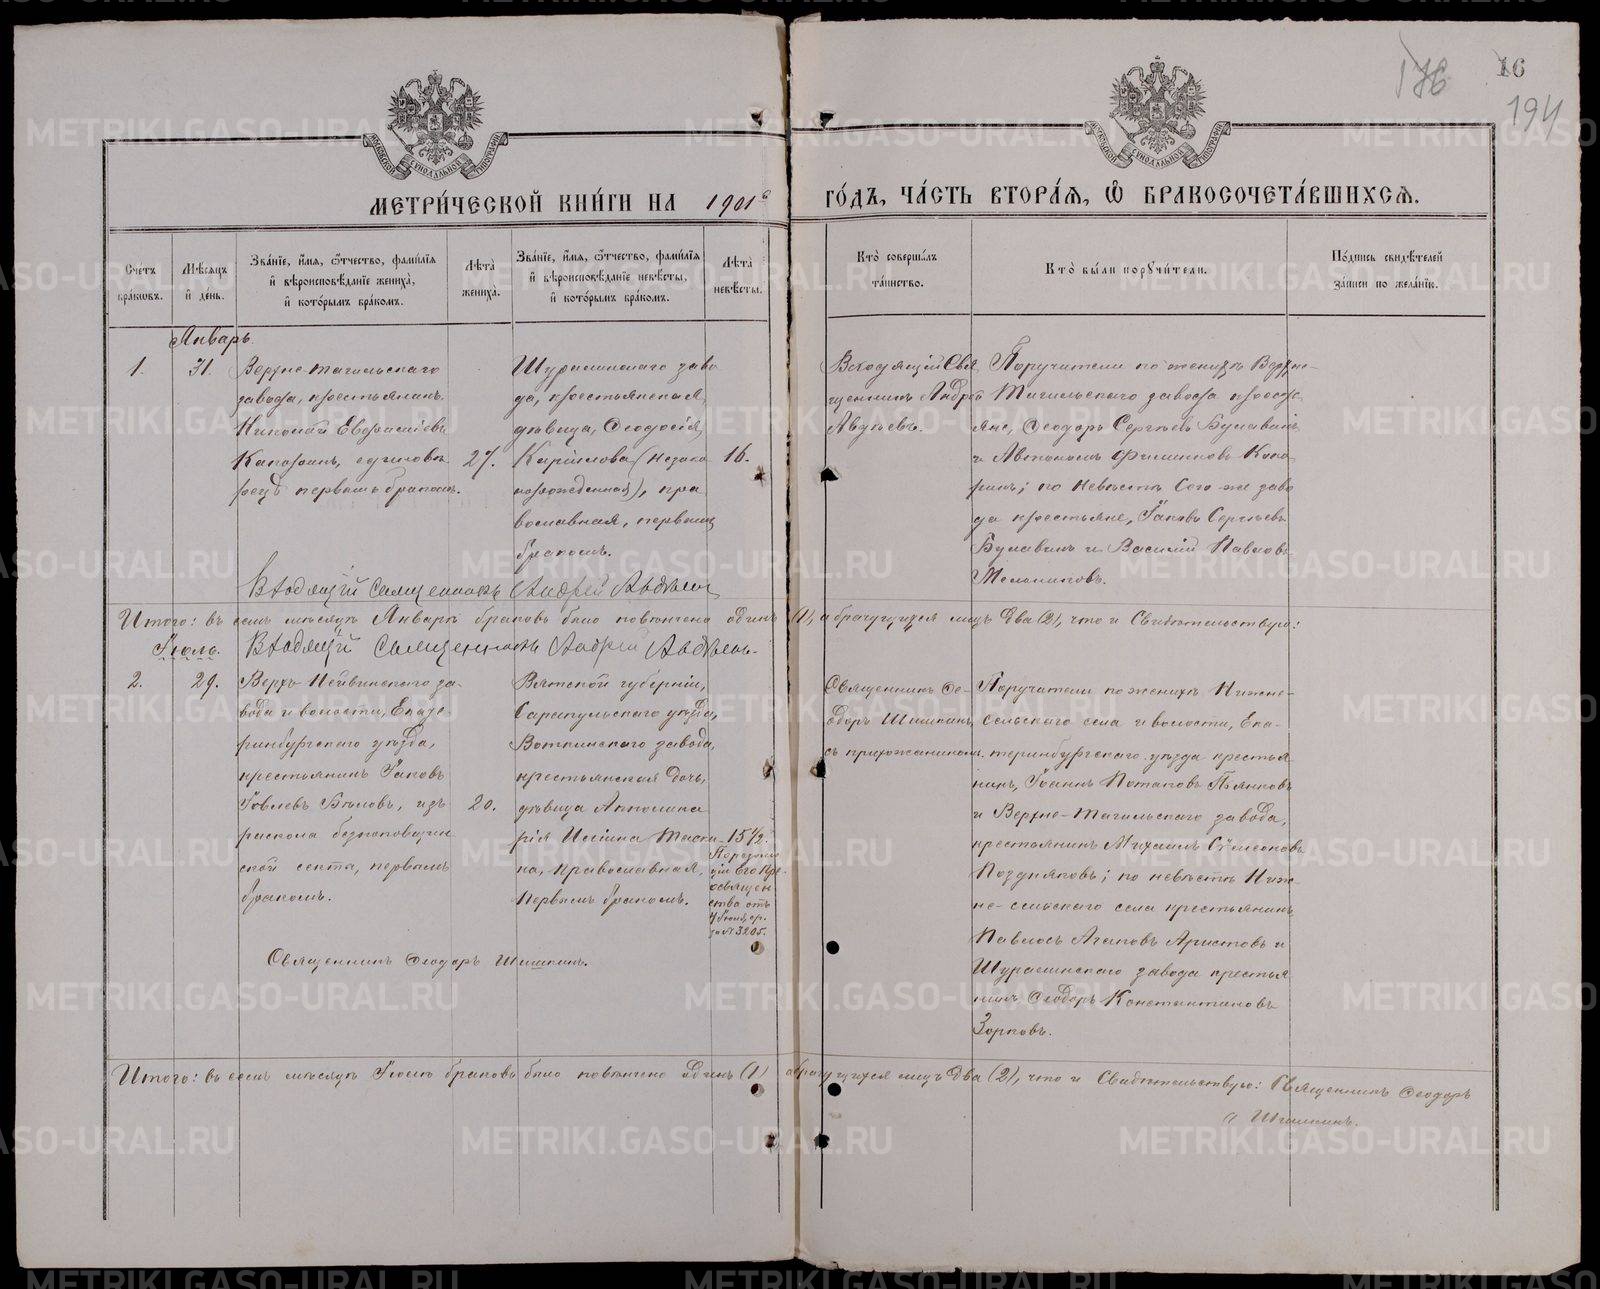 МЕТРИ́ЧЕСКОЙ КНИ́ГИ НА 1901й ГО́ДЪ, ЧА́СТЬ ВТОРА́Я, Ѿ БРАКОСОЧЕТА́ВШИХСЯ.
176
16
194
Сче́тъ бра́ковъ.
Мѣ́сяцъ и де́нь.
Зва́нїе, и́мя, ѻ́тчество, фами́лїя и вѣроисповѣ́данїе жениха̀, и кото́рымъ бра́комъ.
Лѣ́та жениха̀.
Зва́нїе, и́мя, ѻ́тчество, фами́лїя и вѣроисповѣ́данїе невѣ́сты, и кото́рымъ бра́комъ.
Лѣ́та невѣ́сты.
Кто̀ соверша́лъ та́инство.
Кто̀ бы́ли порꙋчи́тели.
По́дпись свидѣ́телей за́писи по жела́нїю.
Январь.
1.
31.
Верхне-тагильскаго
завода, крестьянинъ
Николай
Капоринъ, единовѣ
рецъ первымъ бракомъ.
27.
Шуралинскаго заво
да, крестьянская
дѣвица, Ѳеодосія
Кирилова (незако
норожденная), пра
вославная, первымъ
бракомъ.
16.
Входящій Свя
щенникъ Андрей
Авдѣевъ.
Поручители по женихѣ Верхне-
Тагильскаго завода кресть
яне, Ѳеодоръ Сергѣевъ Булавинъ
и Автономъ Филиповъ Капо-
ринъ; по невѣстѣ Сего же заво
да крестьяне, Іаковъ Сергѣевъ
Булавинъ и Василій Павловъ
Мельниковъ.
Входящій Священникъ Андрей Авдѣевъ
Итого: въ семъ мѣсяцѣ Январѣ браковъ было повѣнчено одинъ (1), а брачущихся лицъ два (2), что и Свидѣтельствую:
Входящій Священникъ Андрей Авдѣевъ.
Іюль.
2.
29.
Верхъ-Нейвинскаго за-
вода и волости, Екате-
ринбургскаго уѣзда,
крестьянинъ Іаковъ
Іовлевъ Бѣловъ, изъ
раскола безпоповщин
ской секты, первымъ
бракомъ.
20.
Вятской губерніи,
Сарапульскаго уѣзда,
Воткинскаго завода,
крестьянская дочь,
дѣвица Апполина
рія
на, православная,
первымъ бракомъ.
15½.
По резолю
ціи Его Пре-
освящен
ства отъ
за № 3205.
Священникъ Ѳе-
одоръ Шишкинъ
съ
Поручители по женихѣ Нижне-
сельскаго села и волости, Ека-
теринбургскаго уѣзда крестья
нинъ, Іоаннъ Потаповъ Пьянковъ
и Верхне-Тагильскаго завода,
крестьянинъ Михаилъ Сѵмеоновъ
Поздняковъ; по невѣстѣ Ниж-
не-сельскаго села крестьянинъ
Павлосъ Агаповъ Аристовъ и
Шуралинскаго завода крестья
нинъ Ѳеодоръ Константиновъ
Зорковъ.
Священникъ Ѳеодоръ Шишкинъ.
Итого: въ семъ мѣсяцѣ Іюлѣ браковъ было повѣнчено одинъ (1) а брачущихся лицъ два (2), что и Свидѣтельствую: Священникъ Ѳеодоръ
Шишкинъ.
METRIKI.GASO-URAL.RU